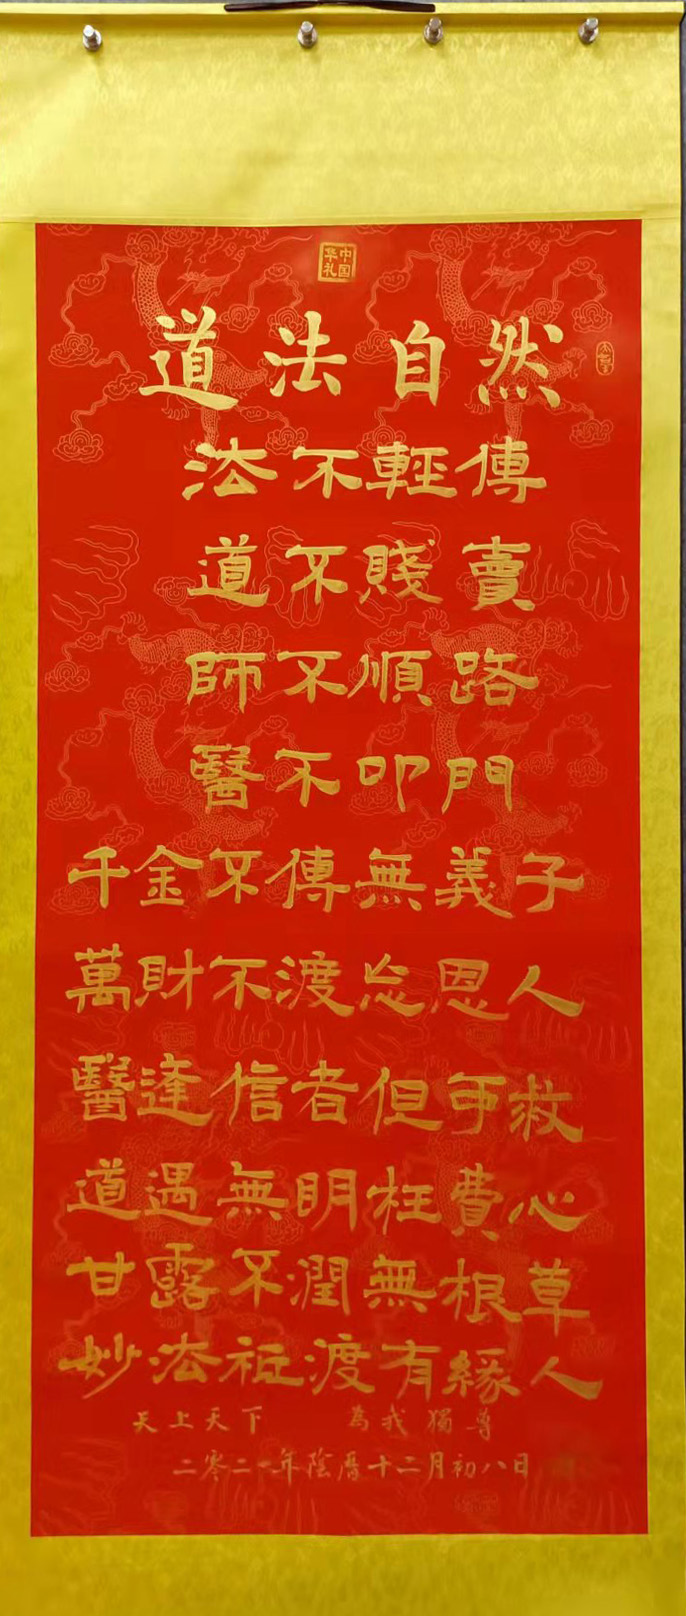 中国
华礼
道法自然
法不輕傳
道不賤賣
師不順路
醫不叩門
千金不傳無義子
萬財不渡忘恩人
醫逢信者但可救
道遇無明枉費心
甘露不潤無根草
妙法祗渡有緣人
天上天下 為我獨尊
二零二一年陰曆十二月初八日